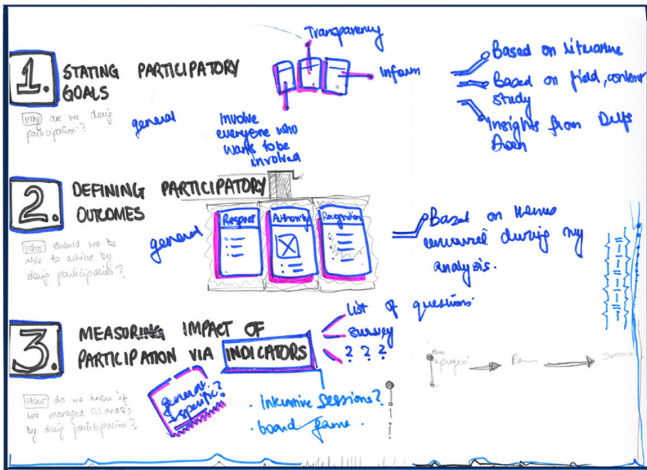 1.
STATING PARTICIPATORY
GOALS
Why are we doing
participation?
general
Transparency
Inform
Involve
everyone who
wants to be
involved
Based on literature
Based on field, context
study
Insights from Delfs
Doen
2.
DEFINING PARTICIPATORY
OUTCOMES
should we be
able to achieve by
doing participation?
general
Respect
Authority
Recognition
Based on
during my
analysis.
3.
MEASURING IMPACT OF
PARTICIPATION VIA INDICATORS
How do we know if
we managed (1) and (2)
by doing participation?
general?
specific?
List of questions
survey
? ? ?
. interactive sessions?
. board game.
project